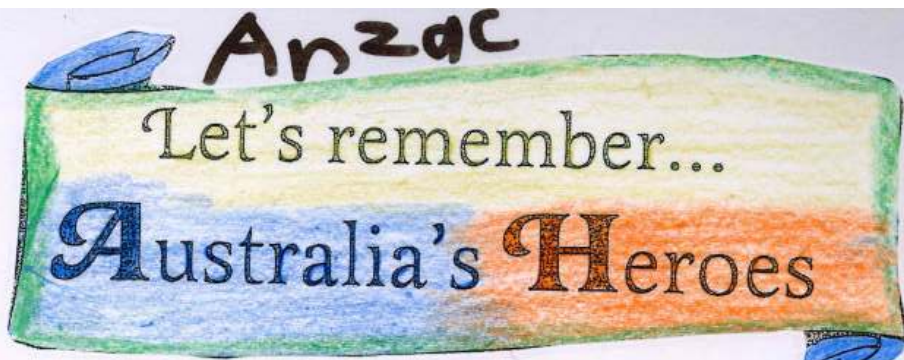 Anzac
Let's remember...
Australia's Heroes